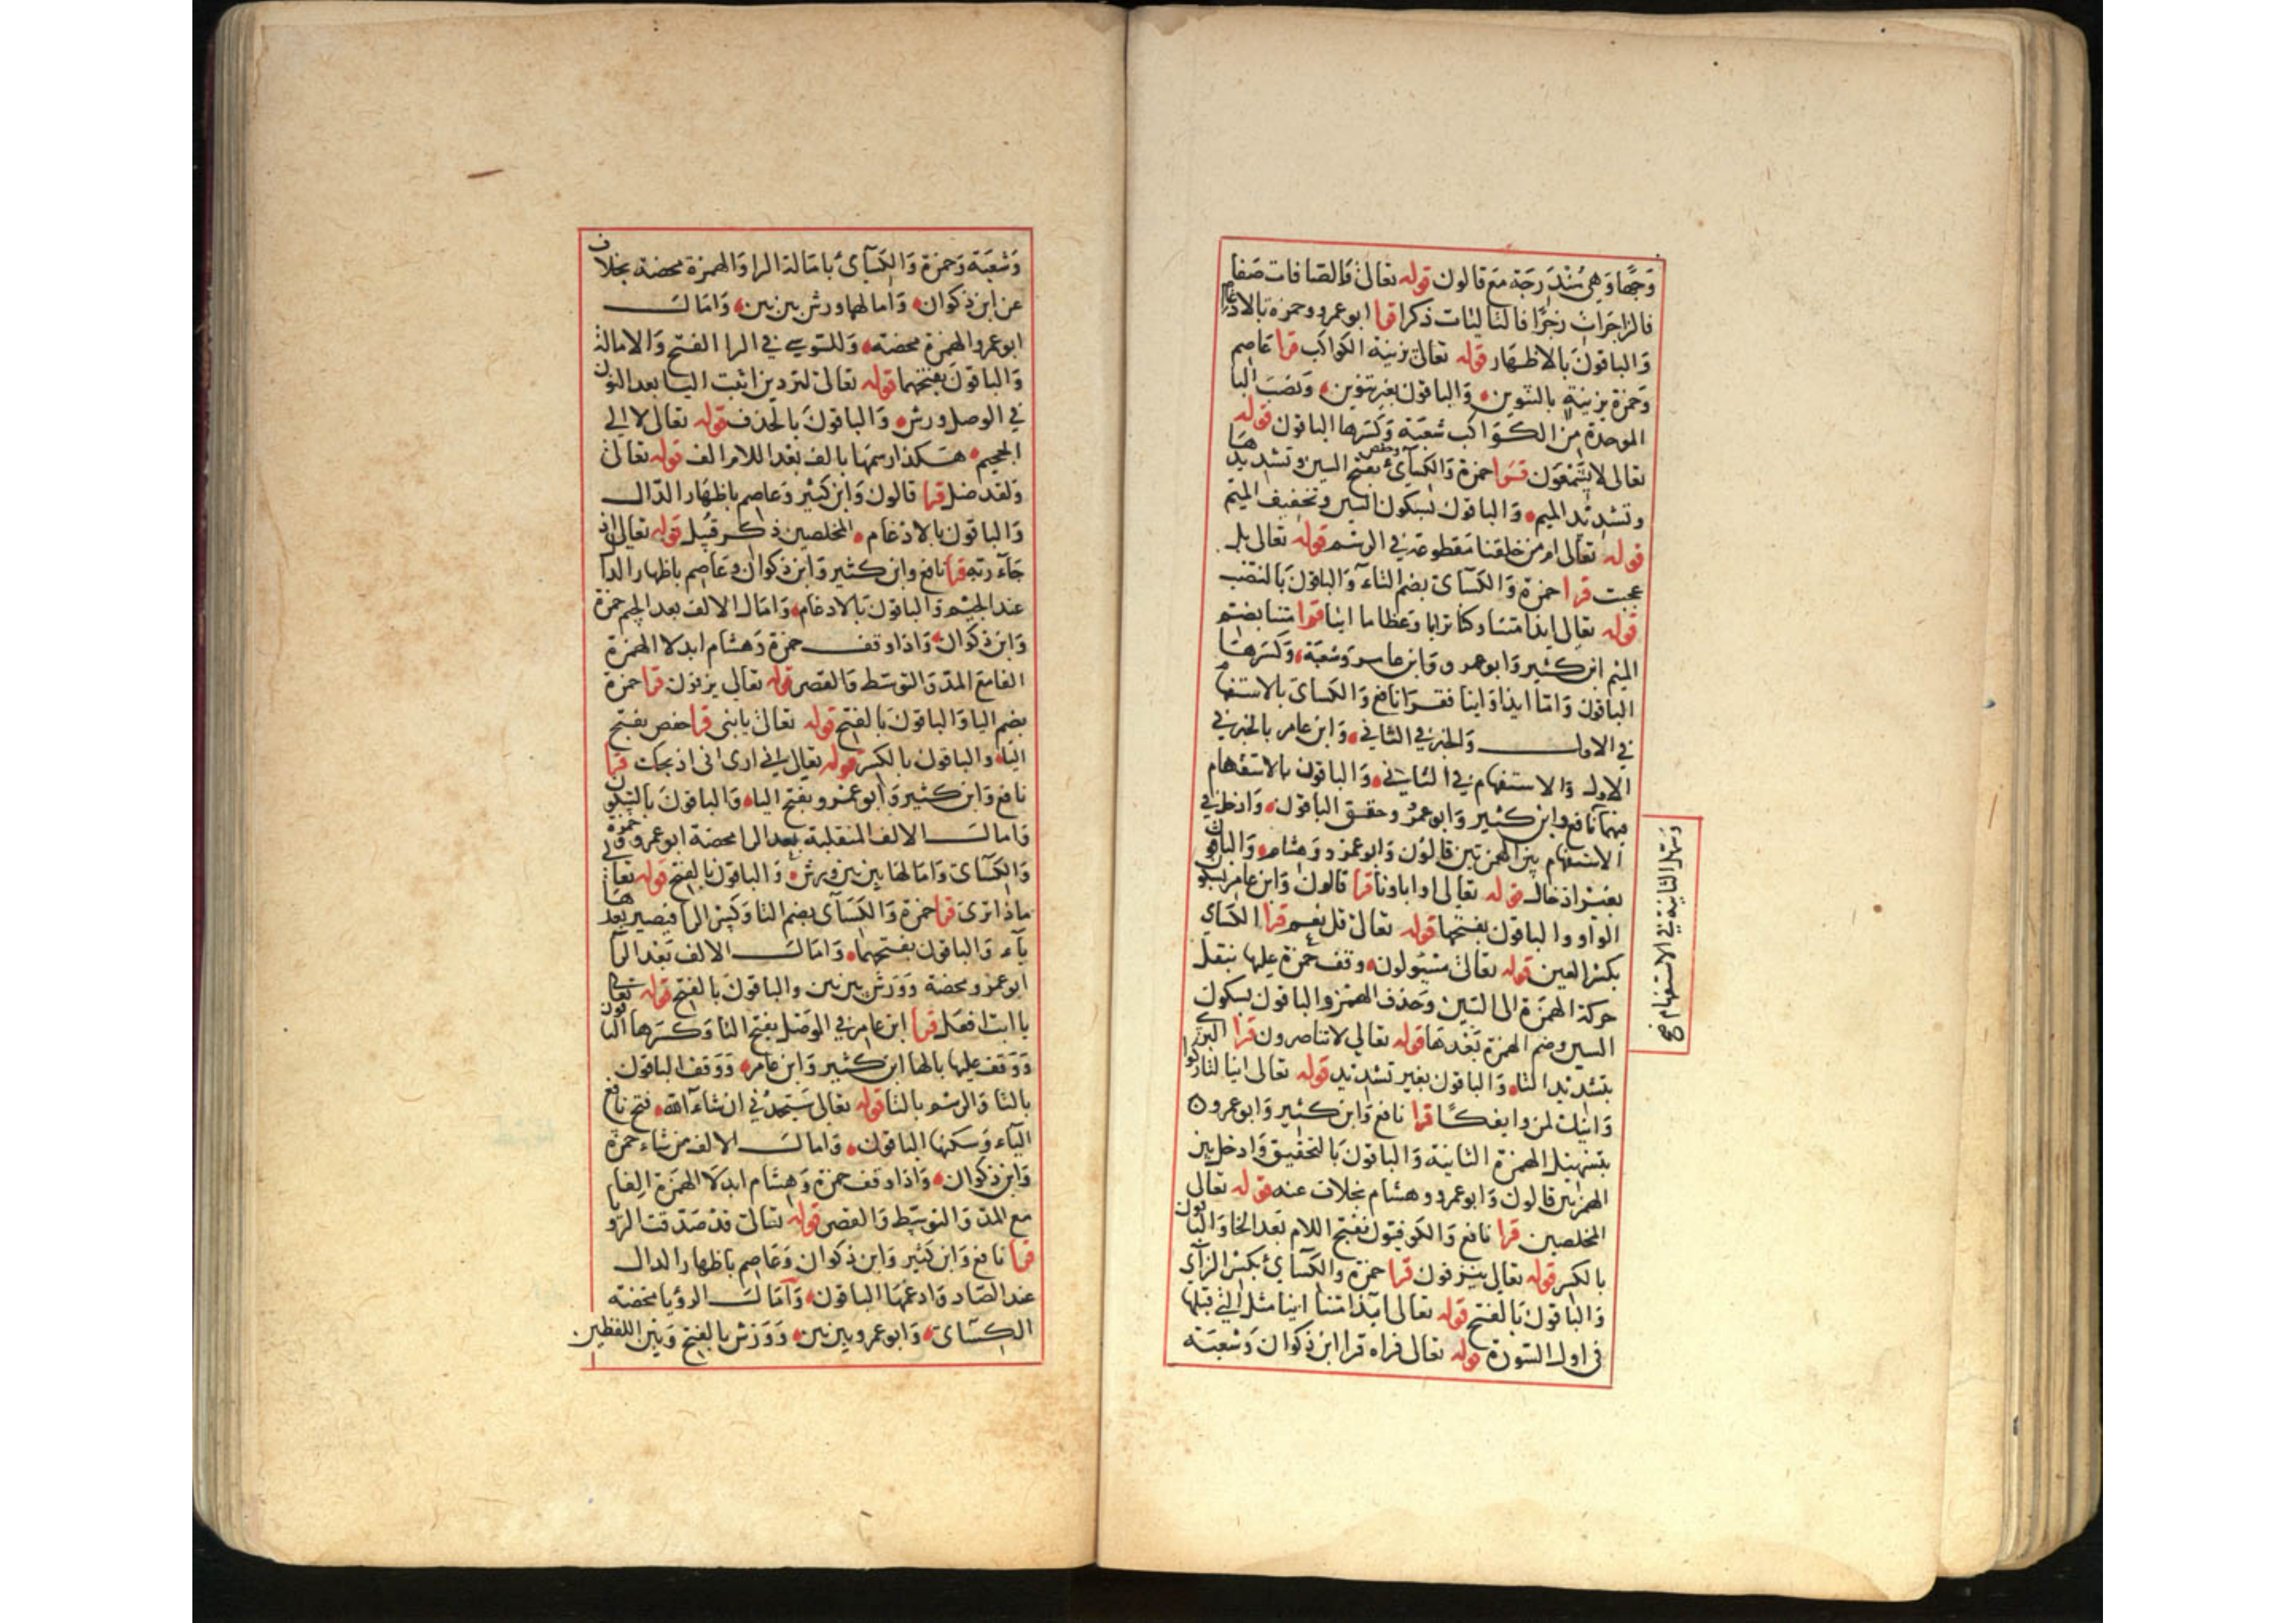 وَجهًا وَهِي مُنْدَرجَة مَع قالون قوله تعالى وَالصَافات صَفا
فالزاجرات زجرًا فالتاليَات ذكرا قرا ابوعمرو وحمزة بالادغام
وَالباقونَ بالاظهَار قوله تعالى بزينة الكواكب قرا عَاصم
وَحمزة بزينةٍ بالتنوين وَالباقون بغير تنوين وَنصَبَ البا
الموحدة من الكوَاكب شعبَة وَكسَرها الباقون قوله
تعالى لا يسَّمَّعون قرا حمزة وَالكسآئ وحفص بفتح السين وتشديدها
وتشديد الميم وَالباقون بسكون السين وتخفيف الميم
قوله تعالى ام من خلقنا مَقطوعة في الرسم قوله تعالى بل
عجبت قرا حمزة وَالكسآى بضم التاء وَالباقون بالنصَب
قوله تعالى ايذا متنا وكنا ترابا وَعظاما اينا قرا متنا بضم
الميم ابن كثير وَابوعمرو وَابن عامر وَشعبَة وَكسَرهَا
الباقون وَامّا ايذا وَاينا فقرَا نافع وَالكساى بالاستفهام
في الاول وَالخبر في الثاني وَابن عامر بالخبر في
الاول وَالاستفهام في الثاني وَالباقون بالاستفهام
فيهما نافع وابن كثير وَابوعمرو وحقق الباقون وَادخل في
الاستفهام بين الهمزتين قالون وَابوعمرو وَهشام وَالباقون
بغير ادخال قوله تعالى او اباونا قرا قالون وَابن عامر بسكون
الواو والباقون بفتحها قوله تعالى قل نعم قرا الكساى
بكسر العين قوله تعالى مسَئولون وقف حمزة عليها بنقل
حركة الهمزة الى السين وَحذف الهمز والباقون بسكون
السين وضم الهمزة بَعْدهَا قوله تعالى لا تناصرون قرا البزي
بتشديد التاء وَالباقون بغير تشديد قوله تعالى اينا لتاركوا
وَاينك لمن وايفكًا قرا نافع وَابن كثير وَابوعمرو
بتسهيل الهمزة الثانية وَالباقون بالتحقيق وَادخل بين
الهمزتين قالون وَابوعمرو وهشام بخلاف عنه قوله تعالى
المخلصين قرا نافع وَالكوفيون بفتح اللام بَعد الخا وَالباقون
بالكسر قوله تعالى ينزفون قرا حمزة والكسآئ بكسر الزاى
وَالباقون بَالفتح قوله تعالى ايذا متنا اينا مثل التي قبلها
في اول السورة قوله تعالى فراه قرا ابن ذكوان وَشعبَة
وَسَهّل الثانية في الاستفهام صح
وَشعبَة وَحمزة وَالكسآئ بامَالة الرا وَالهمزة محضة بخلاف
عن ابن ذكوان وَامالهما ورش بين بين وَامَال
ابوعمرو الهمزة محضة وَللسوسي في الرا الفتح وَالامالة
وَالباقونَ بفتحهما قوله تعالى لتردين اثبت اليا بعد النون
في الوصل ورش وَالباقونَ بالحذف قوله تعالى لا الى
الجحيم هَكذا رسمهَا بالف بَعْد اللام الف قوله تعالى
وَلقد ضل قرا قالون وَابن كثير وَعاصم باظهَار الدّال
وَالباقون بالادغام المخلصين ذكر قبل قوله تعالى اذ
جَآء ربه قرا نافع وابن كثير وَابن ذكوان وَعَاصم باظهار الذا
عند الجيم وَالباقون بَالادغام وَامَال الالف بعد الجيم حمزة
وَابن ذكوان وَاذا وقف حمزة وَهشام ابدلا الهمزة
الفا مَع المدّ وَالتوسّط وَالقصر قوله تعالى يزفون قرا حمزة
بضم اليا وَالباقونَ بالفتح قوله تعالى يابنى قرا حفص بفتح
اليَاء وَالباقون بالكسر قوله تعالى انى ارى انى اذبحك قرا
نافع وَابن كثير وَابوعمرو بفتح الياء وَالباقونَ بالسكون
وَامالَ الالف المنقلبة بعد الرا محضة ابوعمرو وَحمزة
وَالكسآى وَامالها بين بين ورش وَالباقون بالفتح قوله تعالى
ماذا ترى قرا حمزة وَالكسَآى بضم التا وَكسْر الرا فيصير بعدهَا
يآء وَالباقون بفتحهما وَامَالَ الالف بَعْد الرآ
ابوعمرو محضة وَوَرش بين بين والباقونَ بالفتح قوله تعالى
ياابت افعل قرا ابن عَامر في الوَصْل بفتح التا وَكسَرها الباقون
وَوَقف عليها بالها ابن كثير وَابن عَامر وَوَقف الباقون
بالتا وَالرسم بالتا قوله تعالى سَتجدُني ان شاء آلله فتح نافع
اليَاء وَسكنها الباقون وَامالَ الالف من شاء حمزة
وَابن ذكوان وَاذا وقف حمزة وَهشام ابدلَا الهمَزة الفا
مَع المدّ وَالتوسّط وَالقصر قوله تعالى قد صَدّقت الرويا
قرا نافع وَابن كثير وَابن ذكوان وَعَاصم باظهار الدال
عند الصَاد وَادغمهَا الباقون وَامَالَ الرؤيا محضة
الكسآى وَابوعمرو بين بين وَوَرْش بالفتح وَبيْن اللفظين